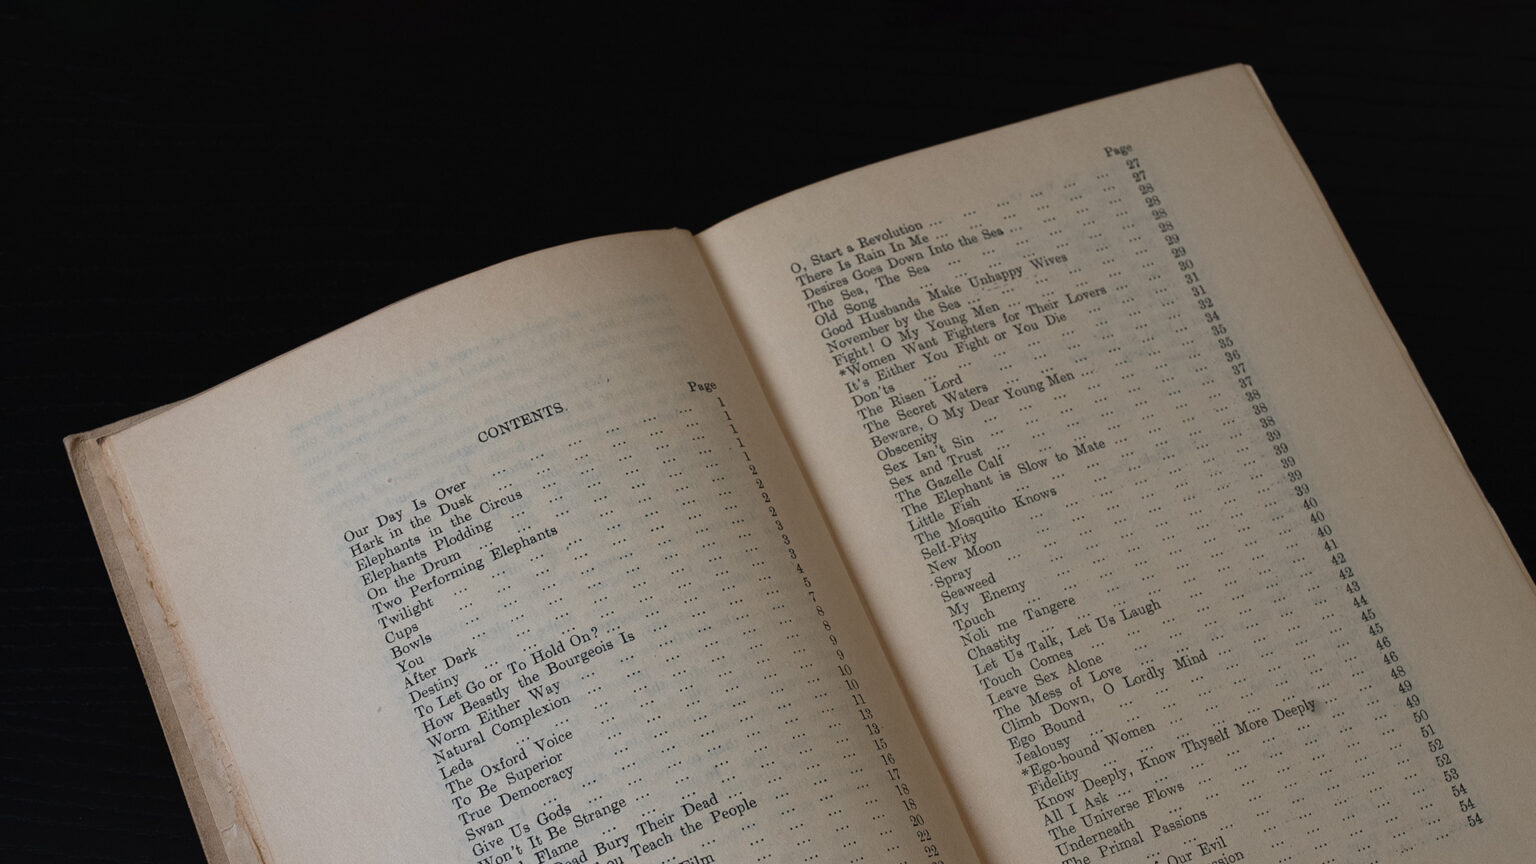 CONTENTS.
Page
Our Day Is Over
Hark in the Dusk
Elephants in the Circus
Elephants Plodding
On the Drum
Two Performing Elephants
Twilight
Cups
Bowls
You
After Dark
Destiny
To Let Go or To Hold On?
How Beastly the Bourgeois Is
Worm Either Way
Natural Complexion
Leda
The Oxford Voice
To Be Superior
True Democracy
Swan
Give Us Gods
Won't It Be Strange
Flame
Dead Bury Their Dead
You Teach the People
Film
1
1
1
1
1
2
2
2
2
3
3
3
4
5
7
8
8
9
9
10
10
11
13
13
15
16
17
18
18
20
22
22
Page
O, Start a Revolution 27
There Is Rain In Me 27
Desires Goes Down Into the Sea 28
The Sea, The Sea 28
Old Song 28
Good Husbands Make Unhappy Wives 28
November by the Sea 29
Fight! O My Young Men 29
*Women Want Fighters for Their Lovers 30
It's Either You Fight or You Die 31
Don'ts 31
The Risen Lord 32
The Secret Waters 34
Beware, O My Dear Young Men 35
Obscenity 35
Sex Isn't Sin 36
Sex and Trust 37
The Gazelle Calf 37
The Elephant is Slow to Mate 38
Little Fish 38
The Mosquito Knows 38
Self-Pity 39
New Moon 39
Spray 39
Seaweed 39
My Enemy 39
Touch 40
Noli me Tangere 40
Chastity 40
Let Us Talk, Let Us Laugh 41
Touch Comes 42
Leave Sex Alone 42
The Mess of Love 43
Climb Down, O Lordly Mind 44
Ego Bound 45
Jealousy 45
*Ego-bound Women 46
Fidelity 46
Know Deeply, Know Thyself More Deeply 48
All I Ask 49
The Universe Flows 49
Underneath 50
The Primal Passions 51
Our Evil 52
52
53
54
54
54